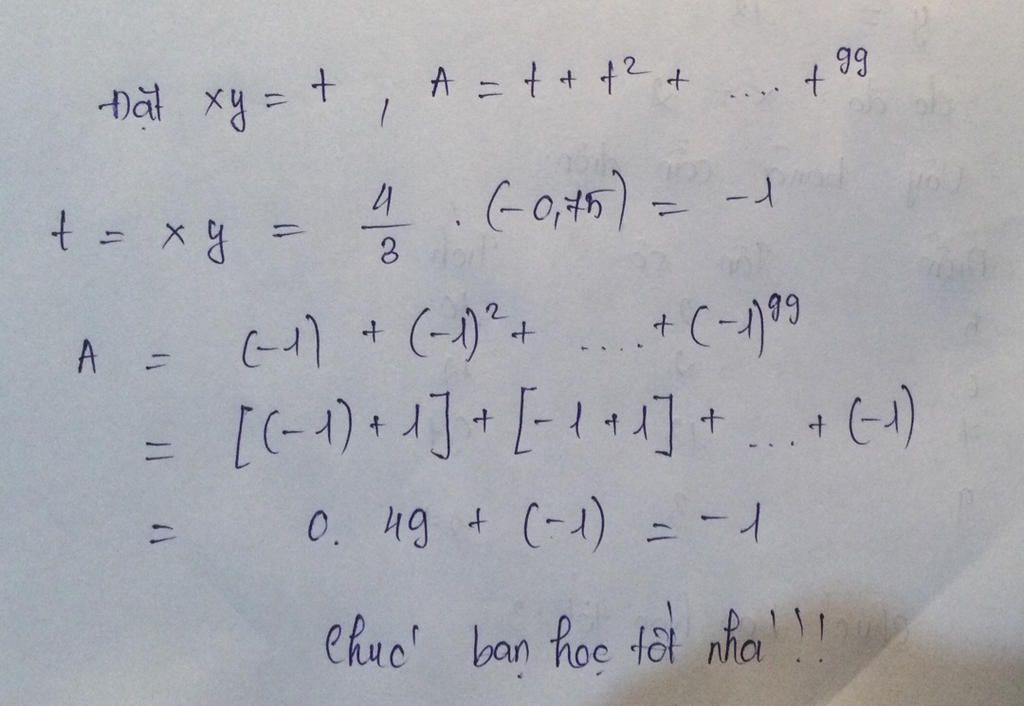 Đặt xy = t , A = t + t² + .... + t⁹⁹
t = xy = 4/3 . (-0,75) = -1
A = (-1) + (-1)² + .... + (-1)⁹⁹
= [(-1) + 1] + [-1 + 1] + ... + (-1)
= 0. 49 + (-1) = -1
Chúc bạn học tốt nha!!!